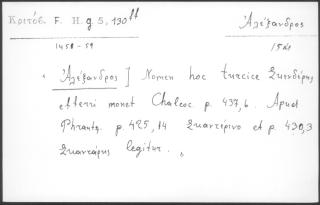 Κριτόβ. F. H. g 5, 130 ff
Ἀλέξανδρος
1458-59
Ἀλέξανδρος] Nomen hoc turcice Σκενδέρης
efferri monet Chalcoc. p. 437, 6. Apud
Phrantz. p. 425, 14 Σκαντέρινο et p. 430,3
Σκαντάρης legitur.